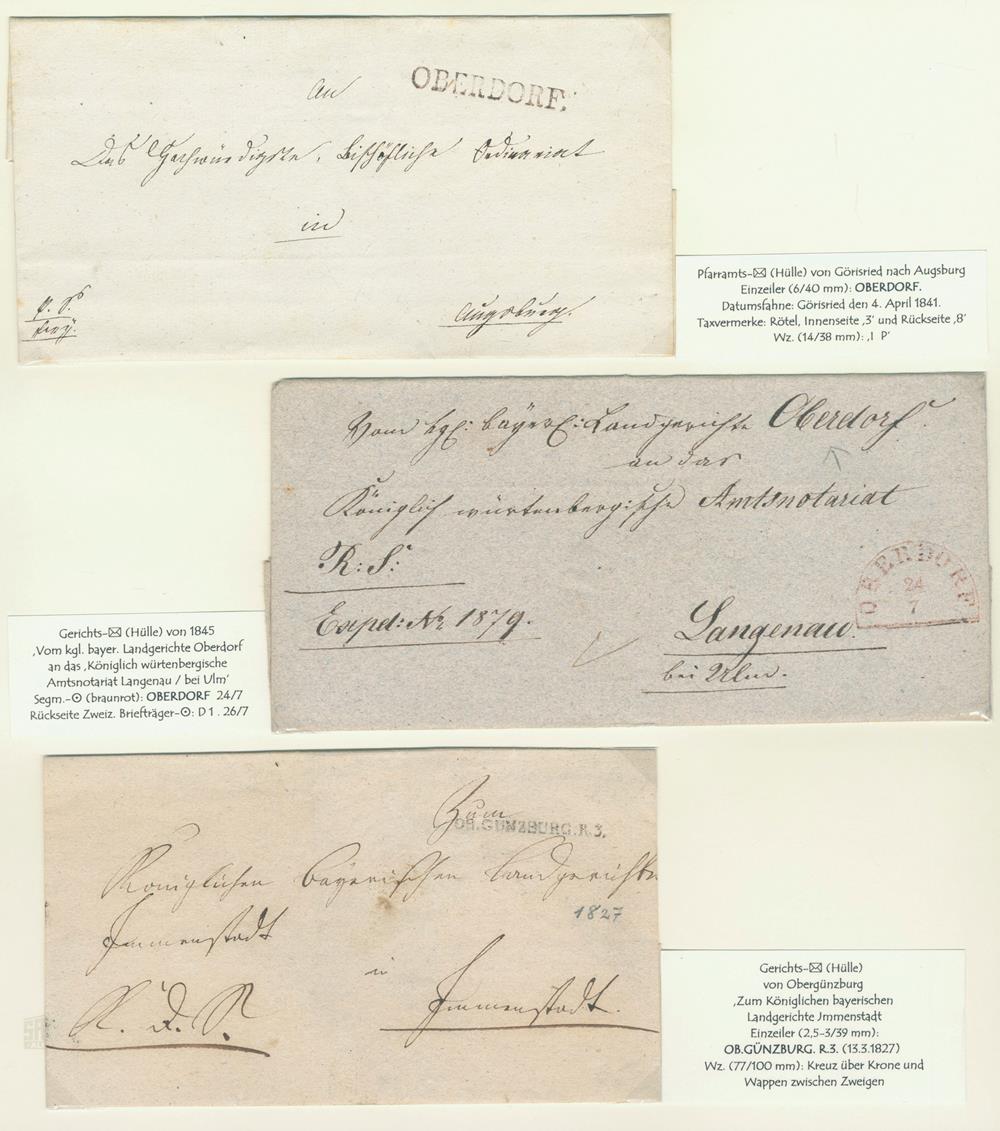 OBERDORF.
An
Das Hochwürdigste, Bischöfliche Ordinariat
in
Augsburg.
Pfarramts-✉ (Hülle) von Görisried nach Augsburg
Einzeiler (6/40 mm): OBERDORF.
Datumsfahne: Görisried den 4. April 1841.
Taxvermerke: Rötel, Innenseite ‚3' und Rückseite ‚8'
Wz. (14/38 mm): ‚I P'
Vom kgl: bayer: Landgerichte Oberdorf.
an das
Königlich würtenbergische Amtsnotariat
R: S:
Exped: No. 1879.
Langenau.
bei Ulm.
OBERDORF
24
7
Gerichts-✉ (Hülle) von 1845
‚Vom kgl. bayer. Landgerichte Oberdorf
an das ‚Königlich würtenbergische
Amtsnotariat Langenau / bei Ulm'
Segm.-⊙ (braunrot): OBERDORF 24/7
Rückseite Zweiz. Briefträger-⊙: D 1 . 26/7
Zum
OB.GÜNZBURG.R.3.
Königlichen bayerischen Landgerichte
1827
Immenstadt
in
R. d. S.
Immenstadt.
Gerichts-✉ (Hülle)
von Obergünzburg
‚Zum Königlichen bayerischen
Landgerichte Jmmenstadt
Einzeiler (2,5-3/39 mm):
OB.GÜNZBURG. R.3. (13.3.1827)
Wz. (77/100 mm): Kreuz über Krone und
Wappen zwischen Zweigen